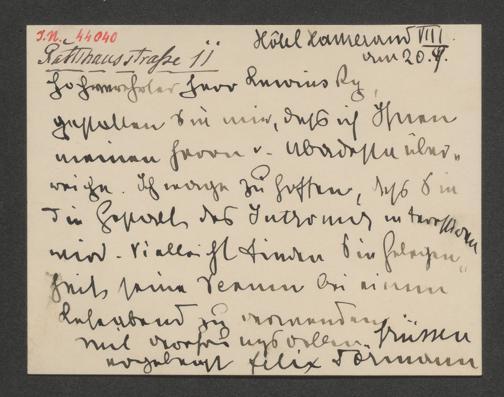 J.N. 44040
Rathhausstraße 11
Hôtel Hammerand VIII
am 20.
Hochverehrter Herr Lewinsky,
gestatten Sie mir, daß ich Ihnen
meinen Herrn v. Abadessa über-
reiche. Ich wage zu hoffen, daß Sie
die Gestalt des interessieren
wird. Vielleicht finden Sie Gelegen-
heit, seine Verse bei einem
Leseabend zu verwenden.
Mit verehrungsvollen Grüssen
ergebenst Felix Dörmann